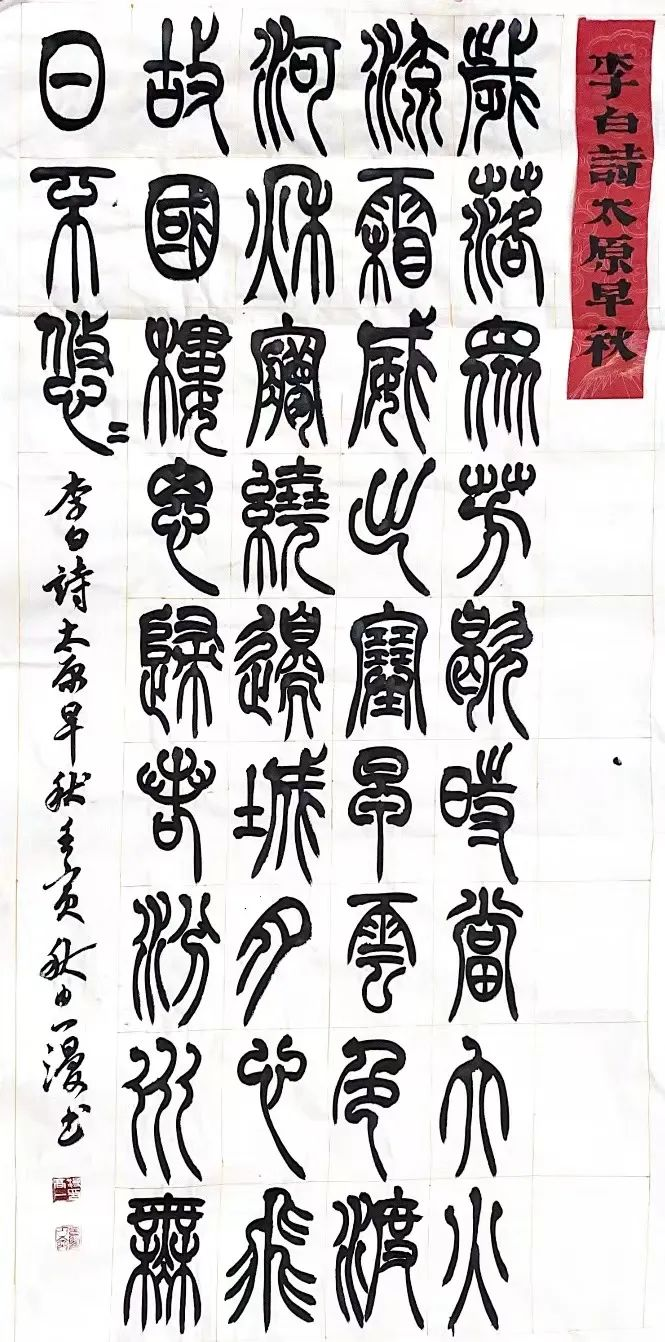 李白詩太原早秋
歲落眾芳歇時當大火
流霜威出塞早雲色渡
河秋夢繞邊城月心飛
故國樓思歸若汾水無
日不悠〻
李白詩太原早秋壬寅秋由一漫书